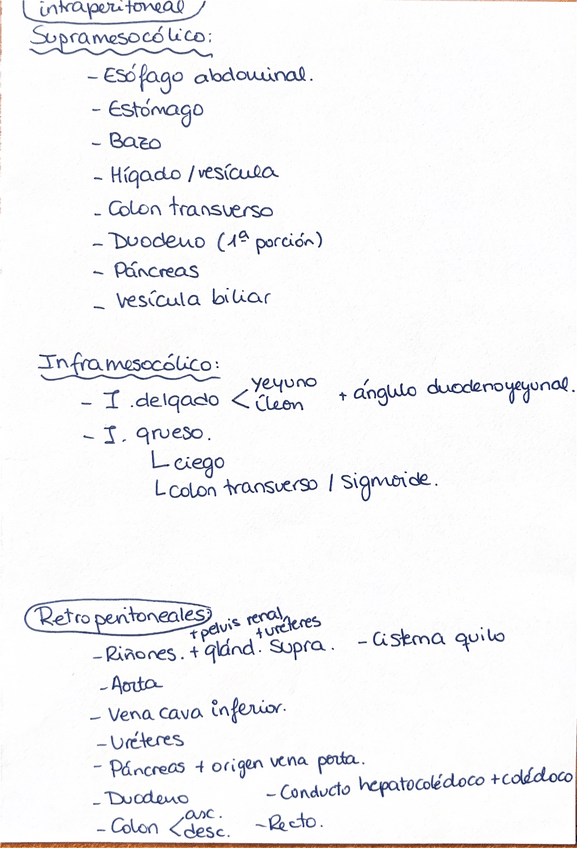 intraperitoneal
Supramesocólico:
- Esófago abdominal.
- Estómago
- Bazo
- Hígado / vesícula
- Colon transverso
- Duodeno (1ª porción)
- Páncreas
- vesícula biliar
Inframesocólico:
- I. delgado < yeyuno + ángulo duodenoyeyunal.
íleon
- I. grueso.
ciego
colon transverso / sigmoide.
Retroperitoneales:
+ pelvis renal + uréteres
- Riñones. + gland. supra. - Cisterna quilo
- Aorta
- Vena cava inferior.
- Uréteres
- Páncreas + origen vena porta.
- Duodeno - Conducto hepatocolédoco + colédoco
- Colon < asc. - Recto.
desc.